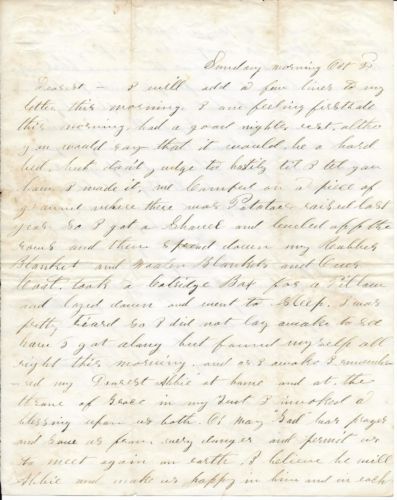 Sunday morning Oct
Dearest - I will add a few lines to my
letter this morning. I am feeling firstrate
this morning, had a good nights rest, altho
you would say that it would be a hard
bed, but don't judge too hastily til I tel you
how I made it, we Camped on a piece of
ground where there was Potatoes raised last
year so I got a Shovel and leveled off the
rows and then spread down my Rubber
Blanket and Woolen Blankets and Over
Coat, took a Catridge Box for a Pillow
and layed down and went to Sleep. I was
pretty tiard so I did not lay awake to see
how I got along but found myself all
right this morning. and as I awoke I remember
-ed my Dearest Abbie at home and at the
throne of Grace in my I invoked a
blessing upon us both. O! may God hear prayer
and Save us from every danger and permit us
to meet again on earth, I believe he will
Abbie and make us happy in him and in each